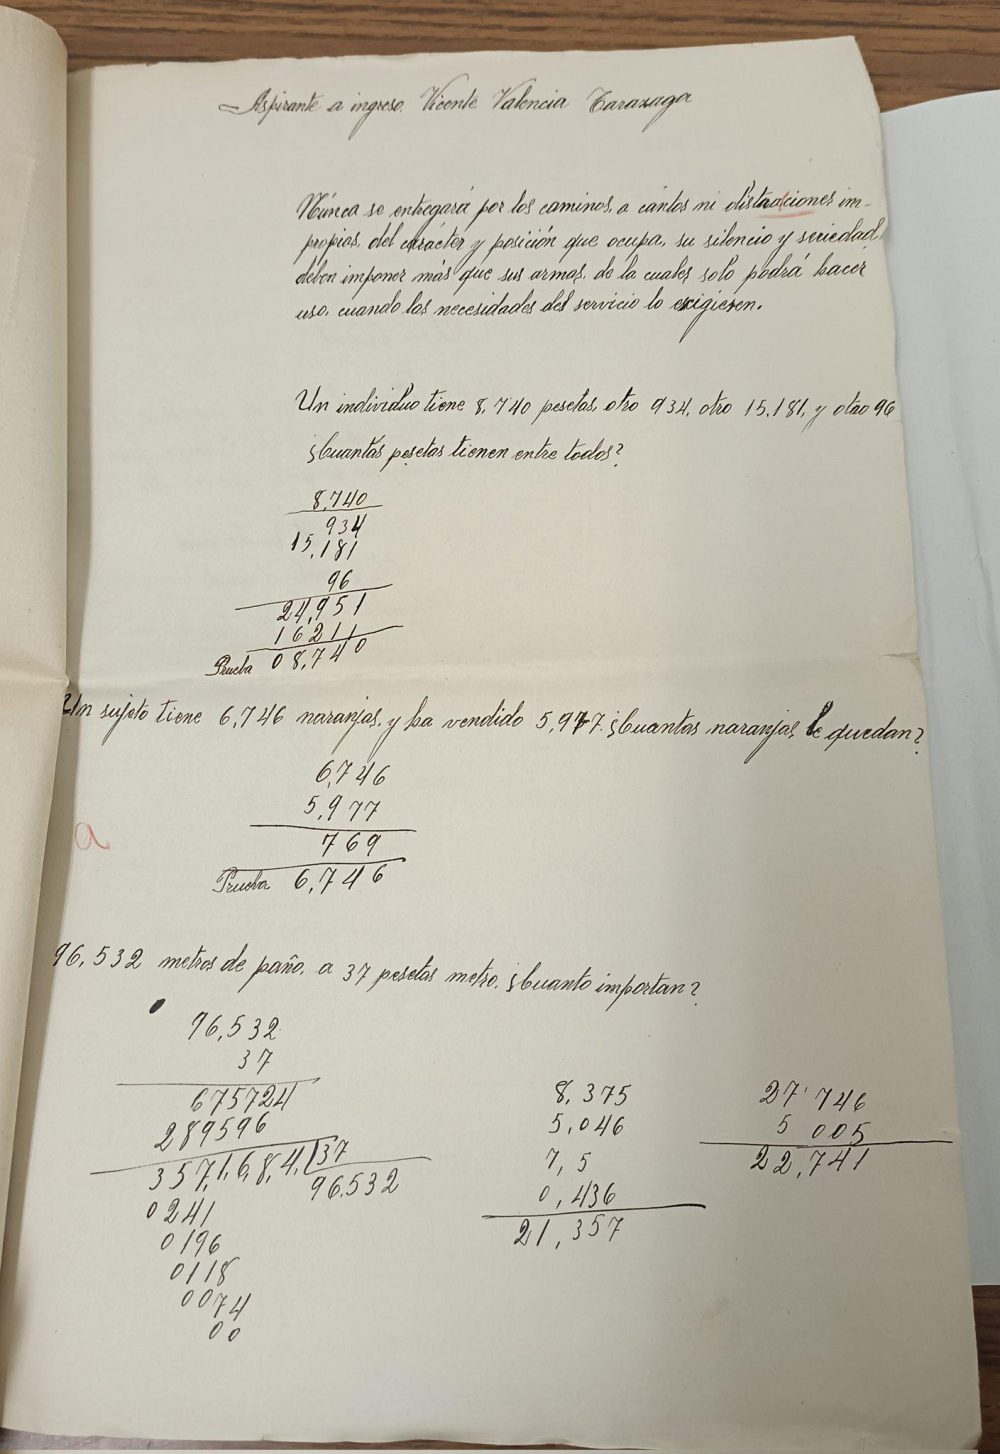 Aspirante a ingreso. Vicente Valencia Tarazaga
Núnca se entregará por los caminos, a cántos ni distraciones im-
propias, del carácter y posición que ocupa, su silencio y seriedad
deben imponer más que sus armas, de la cuales solo podrá hacer
uso, cuando las necesidades del servicio lo exigieren.
Un individuo tiene 8,740 pesetas, otro 934, otro 15,181, y otro 96
¿Cuantas pesetas tienen entre todos?
8,740
934
15,181
96
24,951
16211
Prueba 08,740
Un sujeto tiene 6,746 naranjas, y ha vendido 5,977. ¿Cuantas naranjas le quedan?
6,746
5,977
769
Prueba 6,746
a
96,532 metros de paño, a 37 pesetas metro. ¿Cuanto importan?
96,532
37
675724
289596
357,1,6,8,4, 37
96.532
0241
0196
0118
0074
00
8,375
5,046
7,5
0,436
21,357
27,746
5 005
22,741